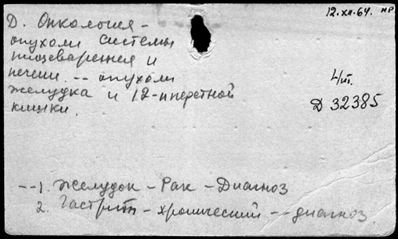 12.XII.64. НР
Д. Онкология -
опухоли системы
пищеварения и
печени. -- опухоли
желудка и 12-иперстной
кишки.
4/ит.
Д 32385
--1. Желудок - Рак - Диагноз
2. Гастриты - хронический -- диагноз